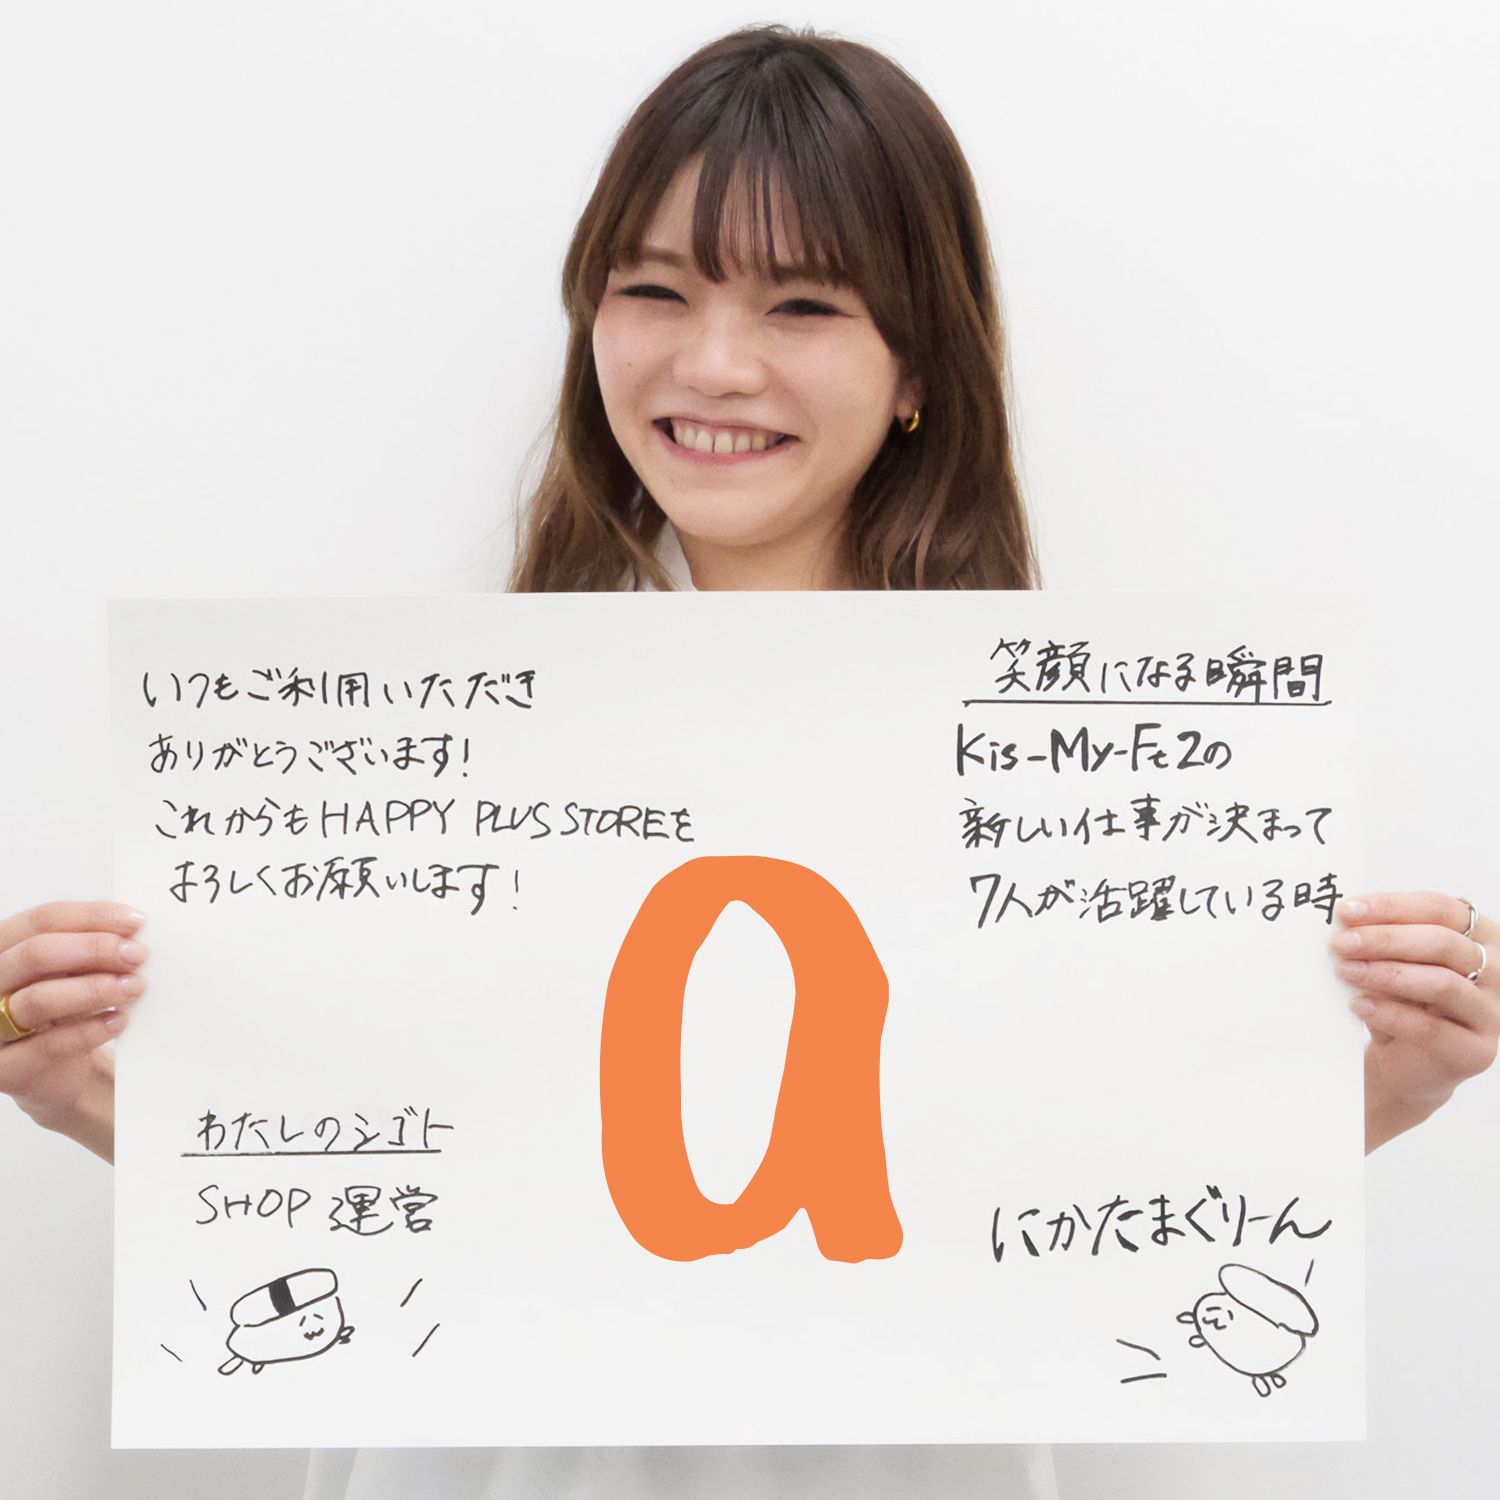 いつもご利用いただき
ありがとうございます!
これからもHAPPY PLUS STOREを
よろしくお願いします!
笑顔になる瞬間
Kis-My-Ft2の
新しい仕事が決まって
7人が活躍している時
a
わたしのシゴト
SHOP 運営
にかたまぐりーん